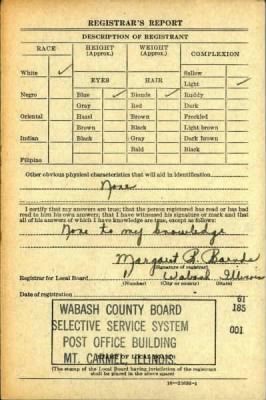 REGISTRAR'S REPORT
DESCRIPTION OF REGISTRANT
RACE HEIGHT (Approx.) WEIGHT (Approx.) COMPLEXION
White ✓ Sallow
EYES HAIR Light ✓
Negro Blue ✓ Blonde ✓ Ruddy
Gray Red Dark
Oriental Hazel Brown Freckled
Brown Black Light brown
Indian Black Gray Dark brown
Bald Black
Filipino
Other obvious physical characteristics that will aid in identification
None
I certify that my answers are true; that the person registered has read or has had
read to him his own answers; that I have witnessed his signature or mark and that
all of his answers of which I have knowledge are true, except as follows:
None to my knowledge
Margaret
(Signature of registrar)
Registrar for Local Board Wabash Illinois
(Number) (City or county) (State)
Date of registration
61
185
001
WABASH COUNTY BOARD
SELECTIVE SERVICE SYSTEM
POST OFFICE BUILDING
MT. CARMEL, ILLINOIS
(STAMP OF LOCAL BOARD)
(The stamp of the Local Board having jurisdiction of the registrant
shall be placed in the above space)